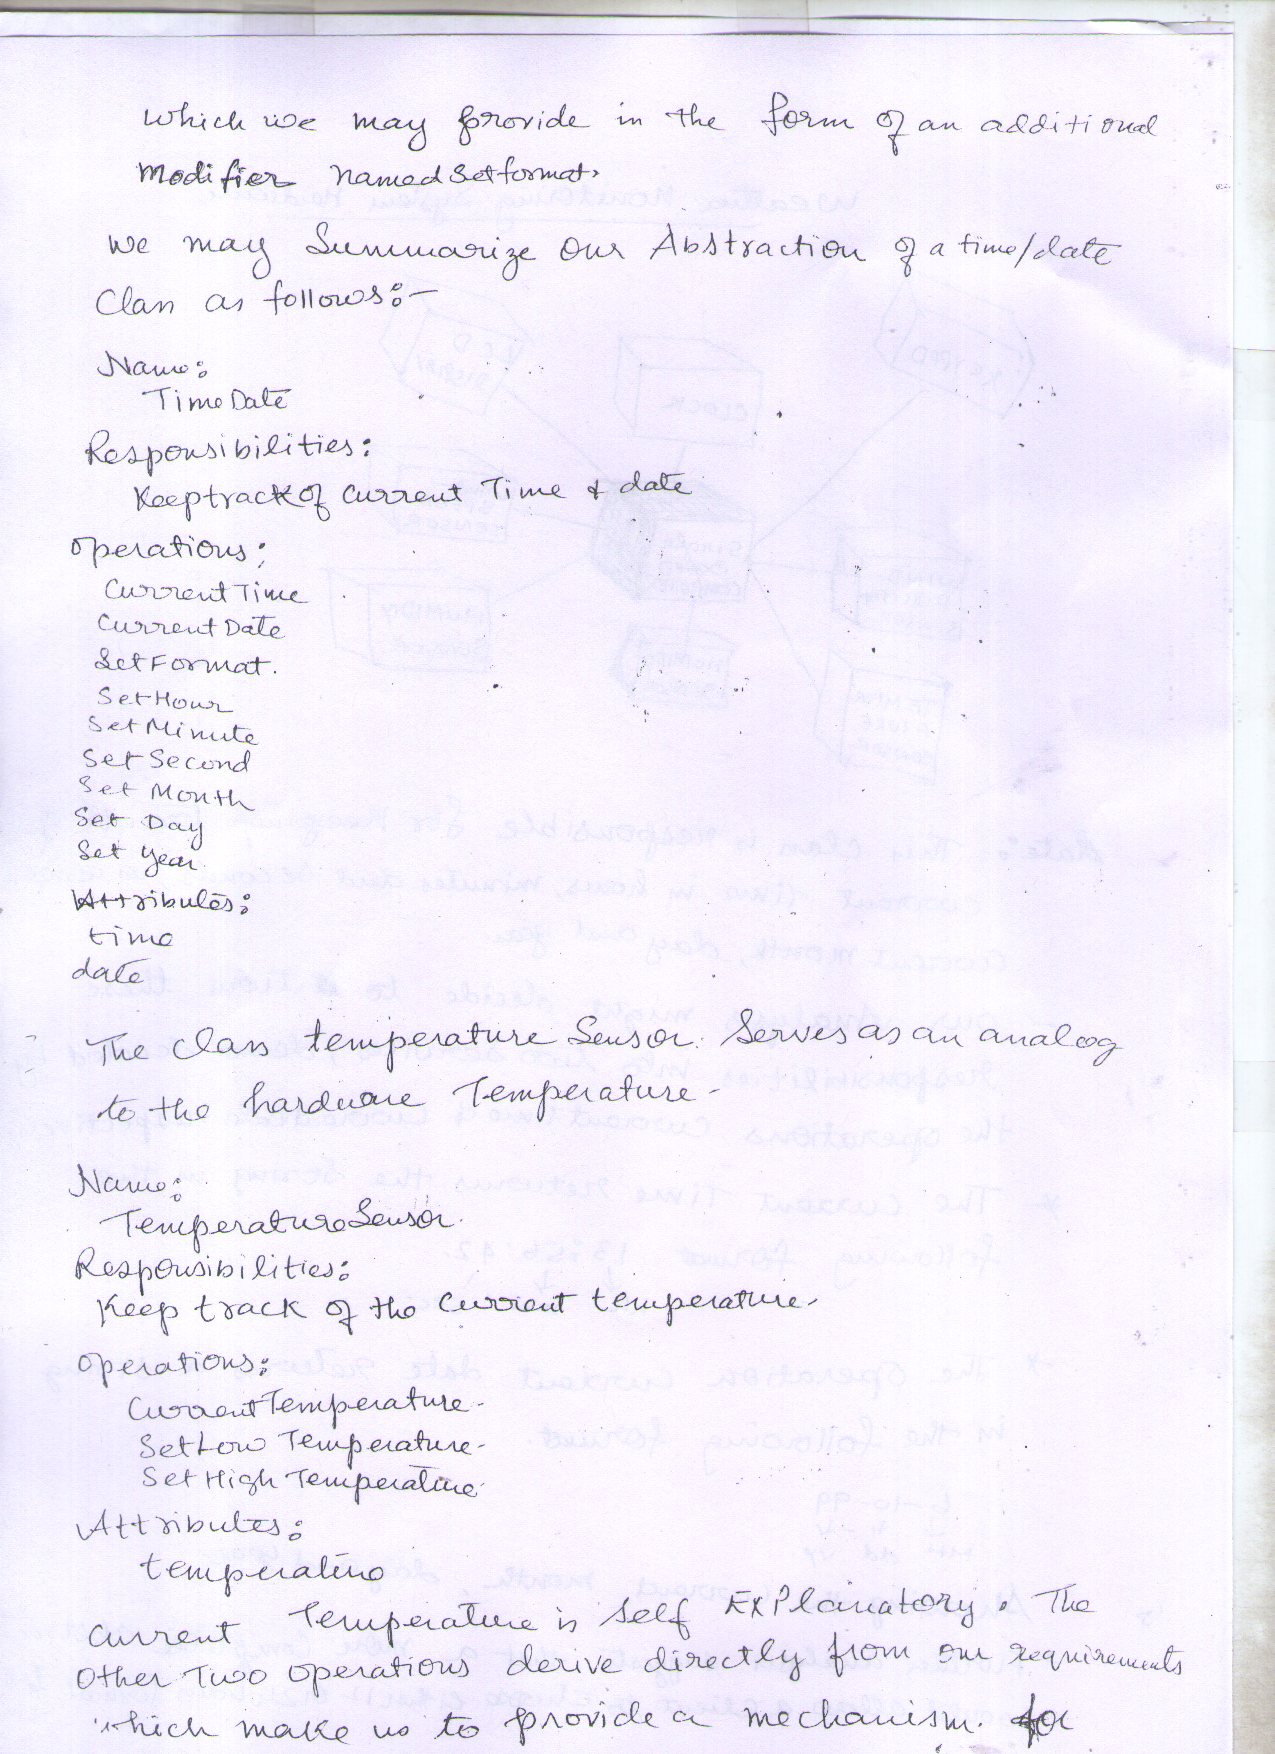 which we may provide in the form of an additional
modifier named setformat.
we may Summarize our Abstraction of a time/date
Class as follows:-
Name:
TimeDate
Responsibilities:
Keep track of current Time & date
operations:
CurrentTime
CurrentDate
SetFormat.
SetHour
SetMinute
Set Second
Set Month
Set Day
Set year
Attributes:
time
date
The Class temperature Sensor. Serves as an analog
to the hardware Temperature-
Name:
TemperatureSensor.
Responsibilities:
Keep track of the current temperature-
operations:
CurrentTemperature-
SetLow Temperature-
SetHigh Temperature
Attributes:
temperature
Current Temperature is self EXPlanatory. The
other Two operations derive directly from our requirements
which make us to provide a mechanism. for